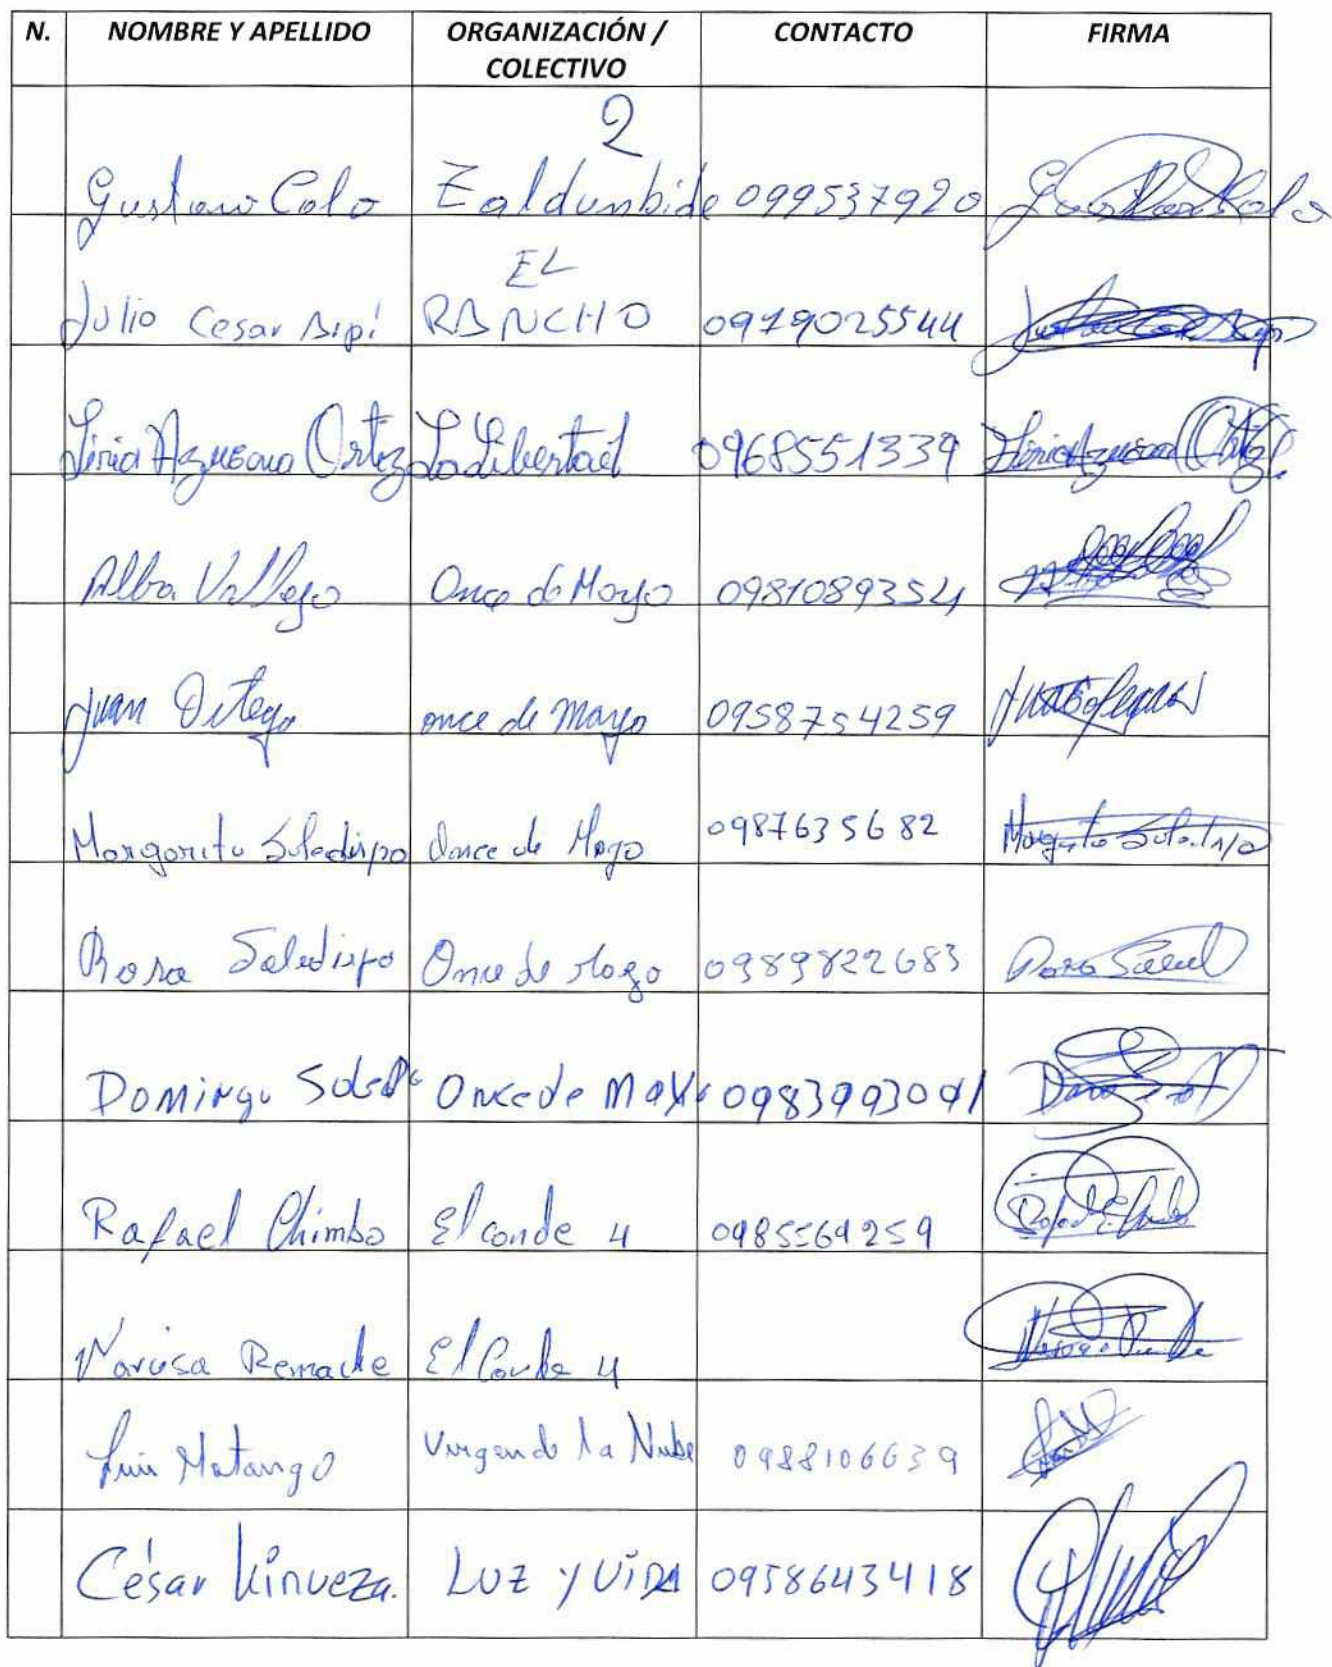 N. NOMBRE Y APELLIDO ORGANIZACIÓN / COLECTIVO CONTACTO FIRMA
2
Gustavo Colo Zaldumbide 099537920
EL
Julio Cesar Sipi RANCHO 0979025544
Liria Azusena Ortiz La Libertad 0968551339 Liria Azusena Ortiz
Alba Vallejo Once de Mayo 0981089354
Juan Ortega once de mayo 0958754259
Margarita Soledispa Once de Mayo 0987635682 Margarita Soledispa
Rosa Soledispa Once de Mayo 0989822683 Rosa
Domingo Once de Mayo 0983993091
Rafael Chimbo El conde 4 0985569259
Narcisa Remache El Conde 4
Luis Matango Virgen de la Nube 0988106639
César Kinveza. LUZ y VIDA 0958643418